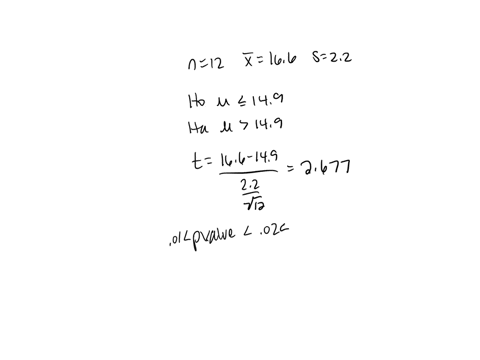 n=12 x̄=16.6 s=2.2
Ho μ ≤ 14.9
Ha μ > 14.9
t= 16.6-14.9 / (2.2 / √12) = 2.677
.01<pvalue < .02